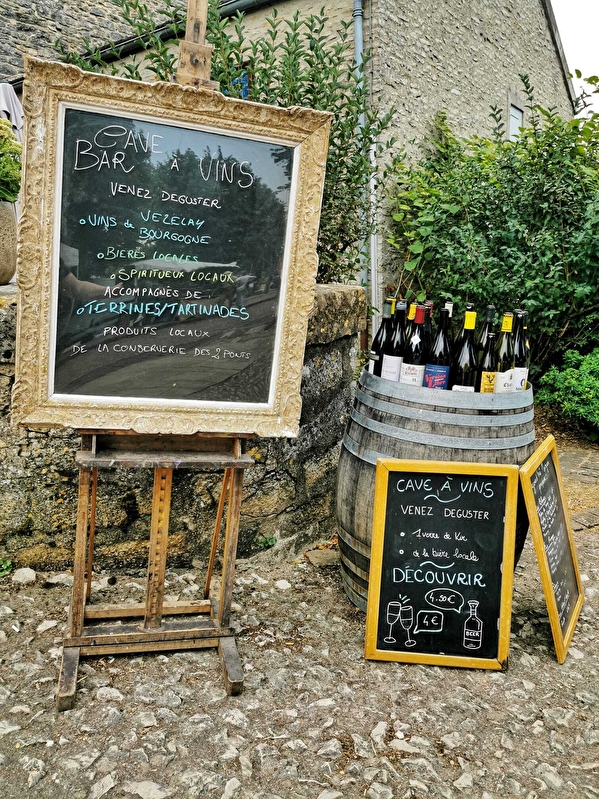 CAVE
BAR À VINS
VENEZ DEGUSTER
VEZELAY
VINS de BOURGOGNE
BIERES LOCALES
SPIRITUEUX LOCAUX
ACCOMPAGNÉS DE :
TERRINES/TARTINADES
PRODUITS LOCAUX
DE LA CONSERVERIE DES 2 PONTS
CAVE À VINS
VENEZ DEGUSTER
1 verre de Kir
de la bière locale
DÉCOUVRIR
4.50€
4€
BEER